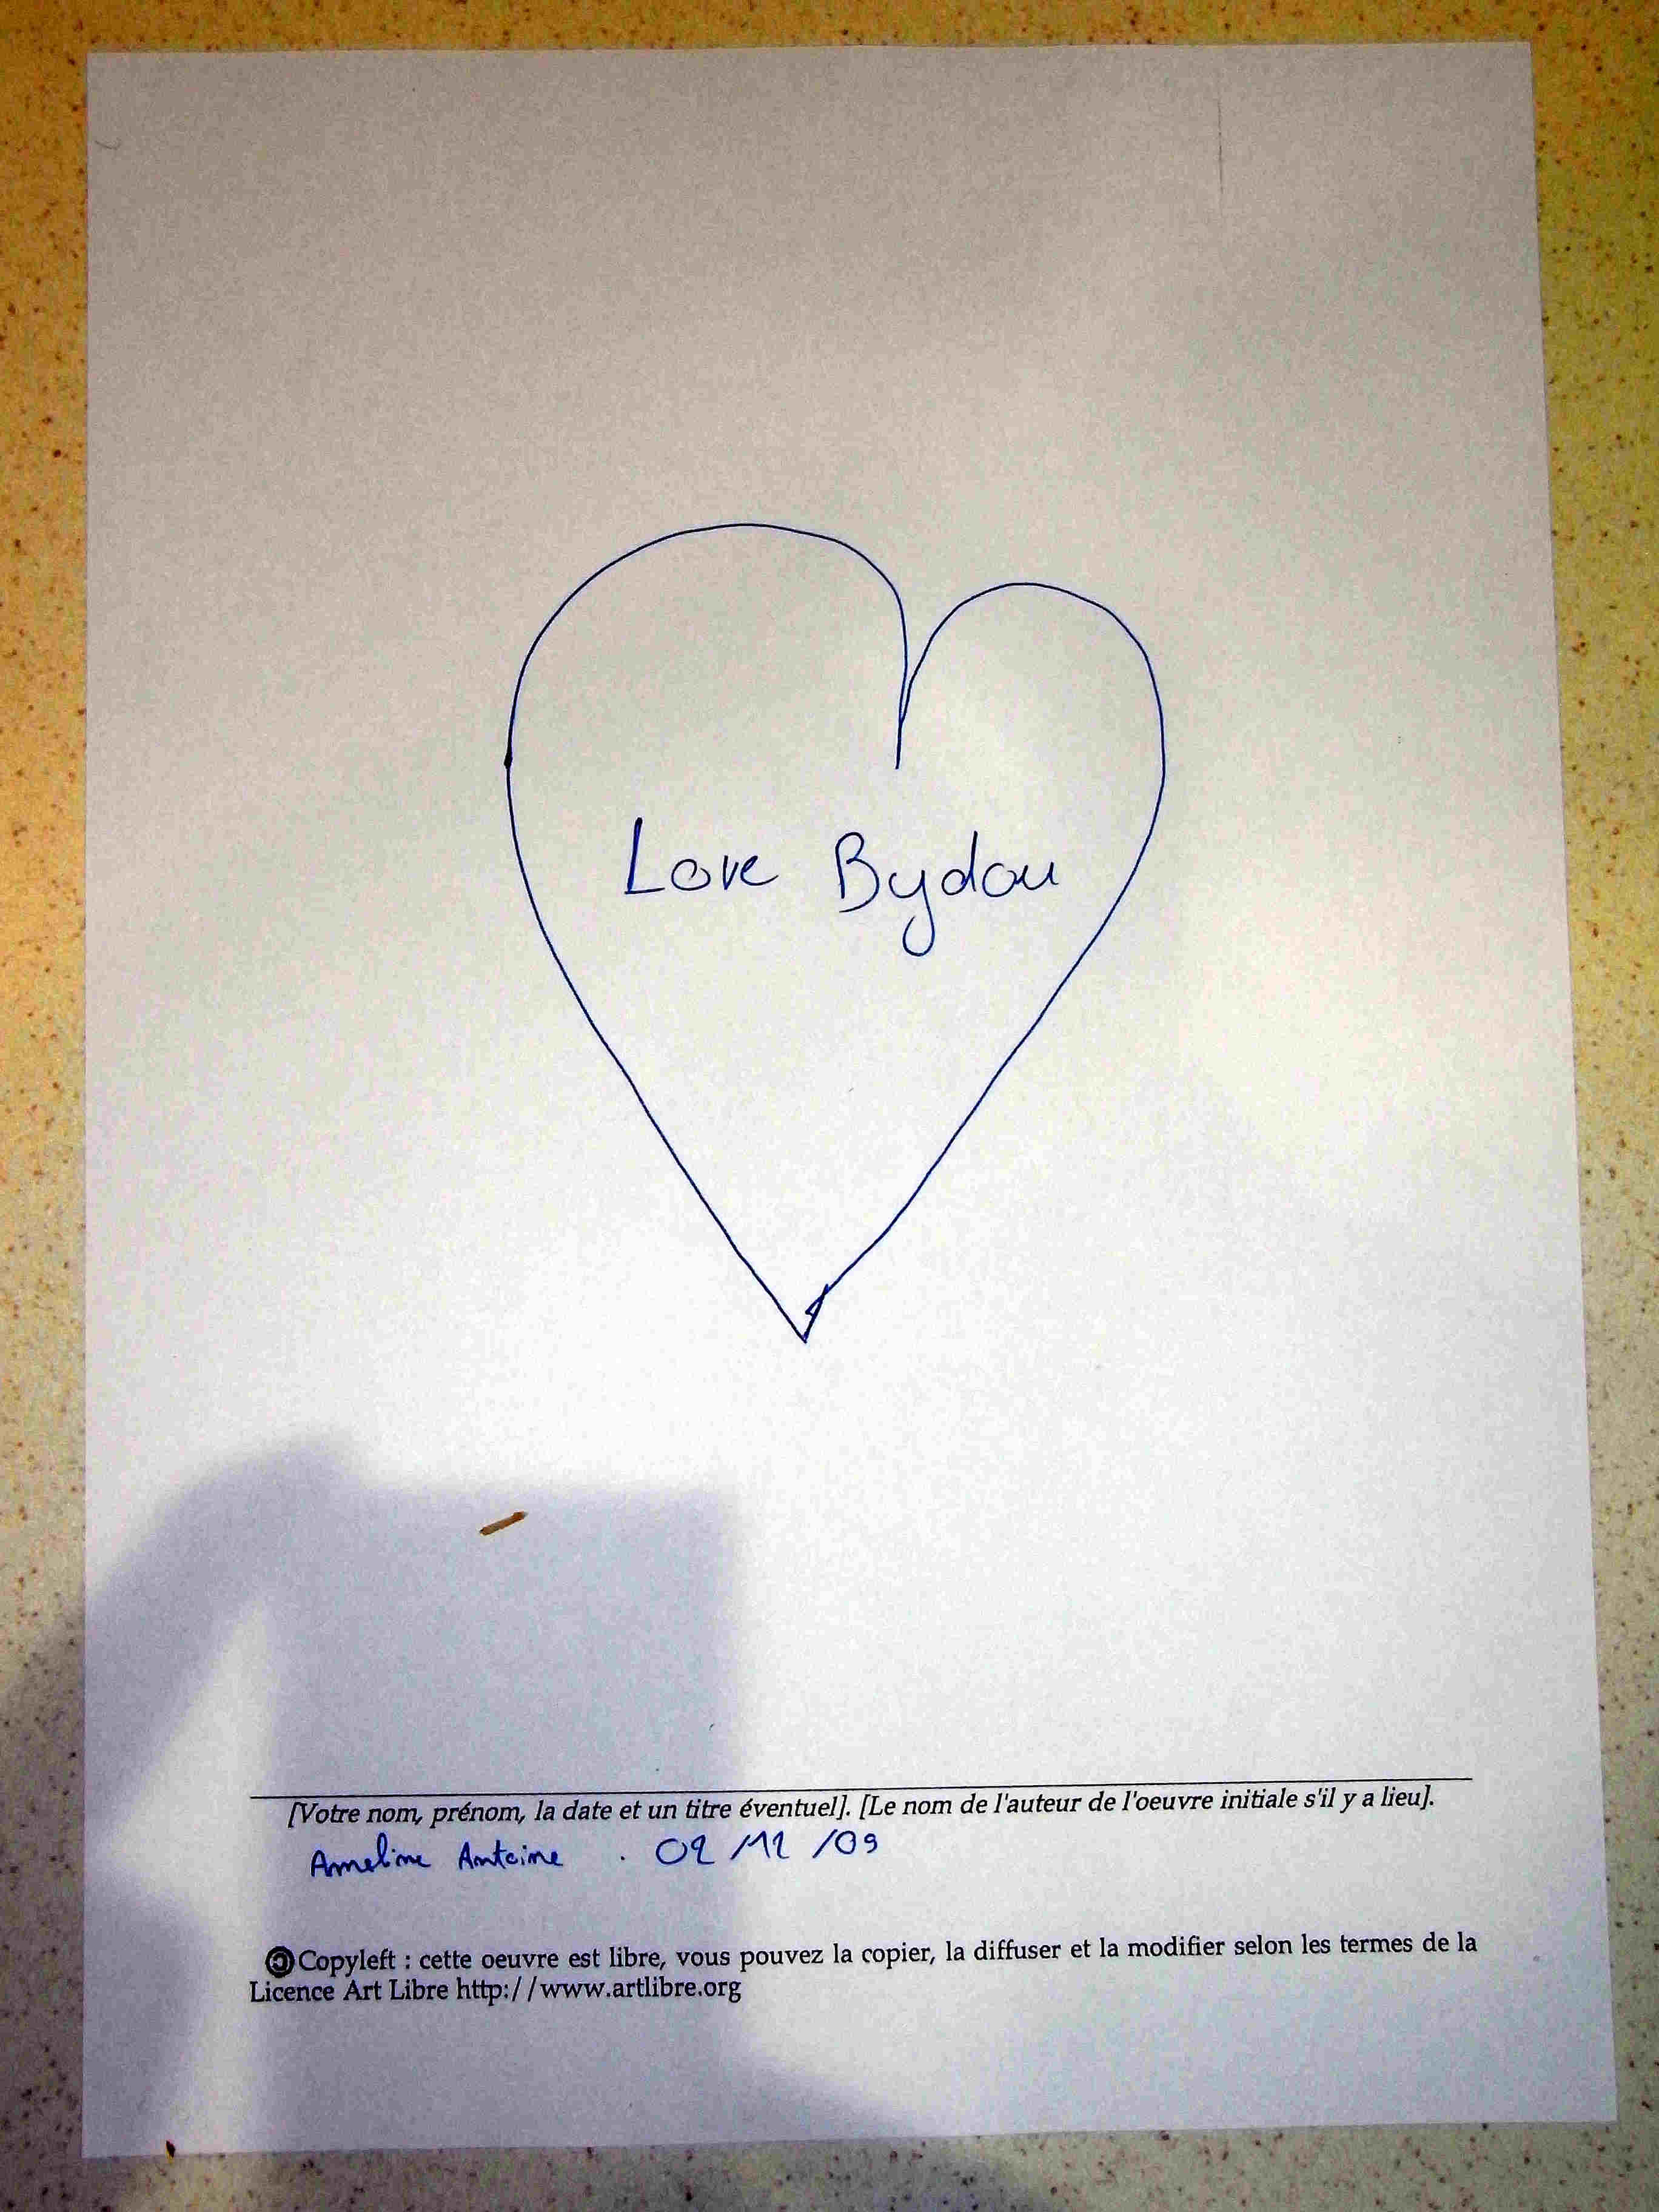 Love Bydou
[Votre nom, prénom, la date et un titre éventuel]. [Le nom de l'auteur de l'oeuvre initiale s'il y a lieu].
Ameline Antoine . 02/12/09
Copyleft : cette oeuvre est libre, vous pouvez la copier, la diffuser et la modifier selon les termes de la
Licence Art Libre http://www.artlibre.org